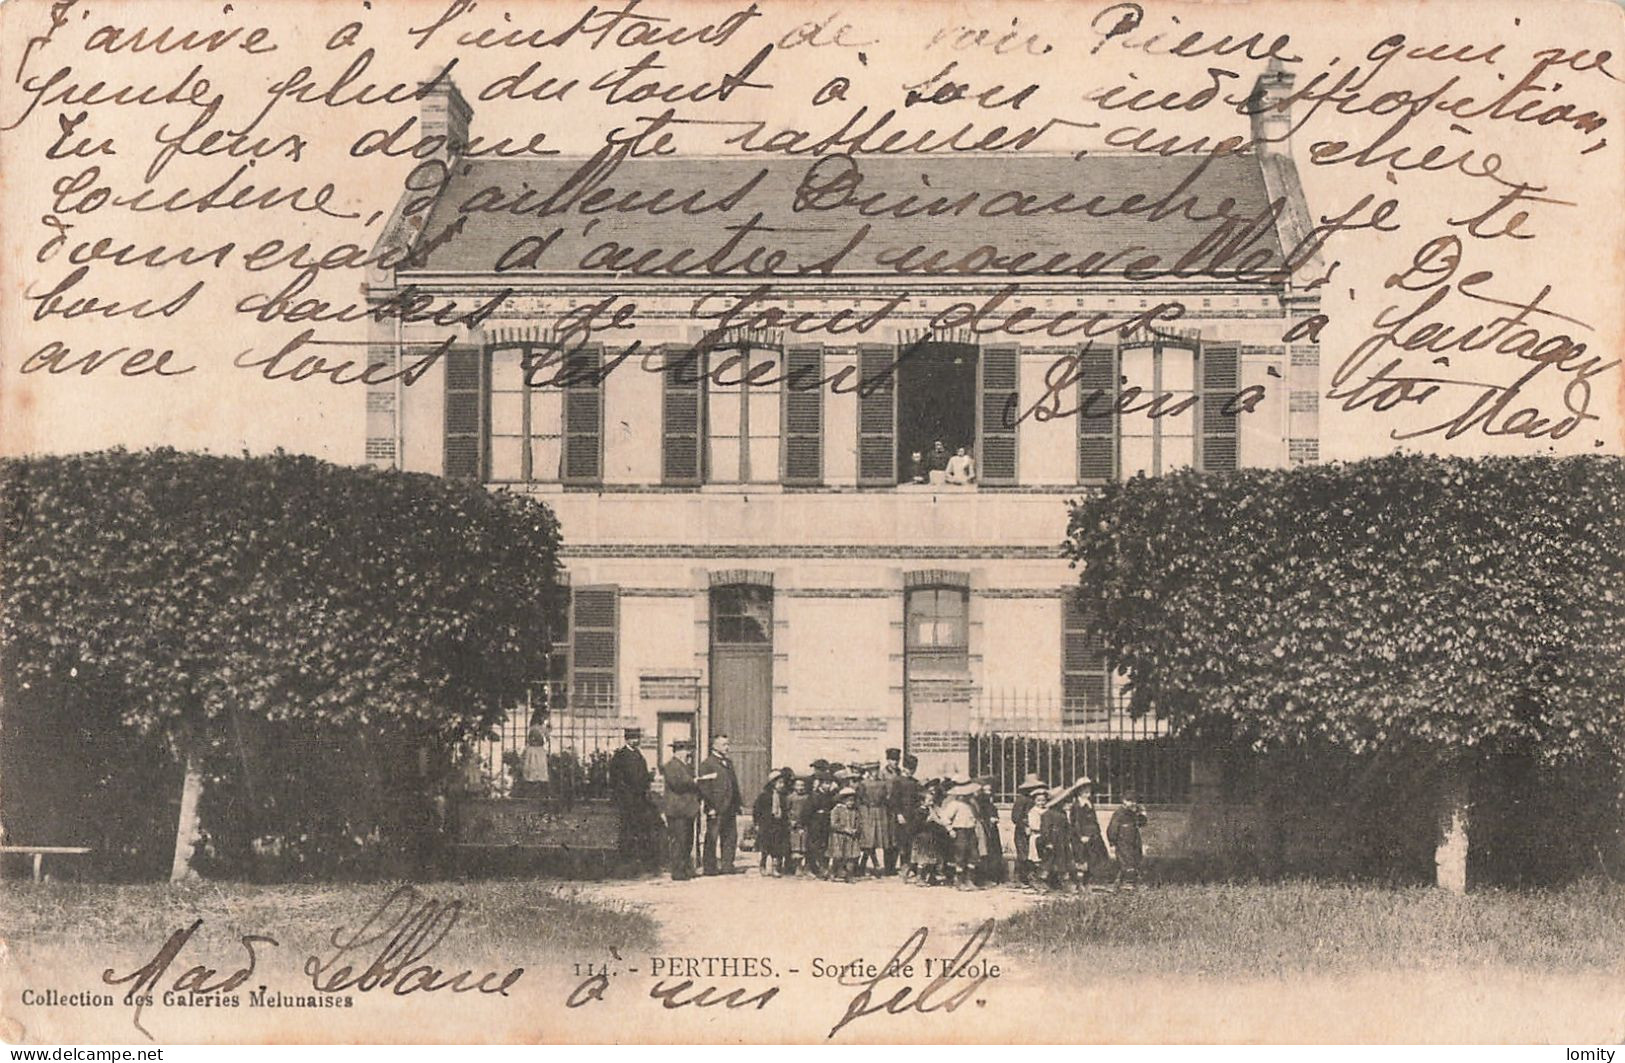 J'arrive à l'instant de voir Pierre, qui ne
pense plus du tout à son indisposition,
Tu peux donc te rassurer, ma chère
Cousine, d'ailleurs Dimanche, je te
donnerais d'autres nouvelles. De
bons baisers de tous deux à partager
avec tous les tiens Bien à toi Mad.
114. - PERTHES. - Sortie de l'Ecole
Mad Leblanc à un fils.
Collection des Galeries Melunaises
https://www.delcampe.net
lomity